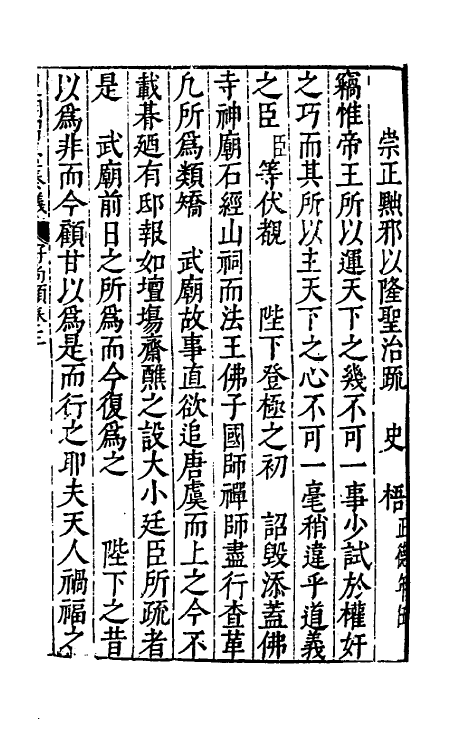 崇正黜邪以隆聖治疏 史 梧
竊惟帝王所以運天下之幾不可一事少試於權奸
之巧而其所以主天下之心不可一毫稍違乎道義
之臣臣等伏覩 陛下登極之初 詔毀添蓋佛
寺神廟石經山祠而法王佛子國師禪師盡行查革
凡所爲類矯 武廟故事直欲追唐虞而上之今不
載朞廼有邸報如壇場齋醮之設大小廷臣所疏者
是 武廟前日之所爲而今復爲之 陛下之昔
以爲非而今顧甘以爲是而行之耶夫天人禍福之